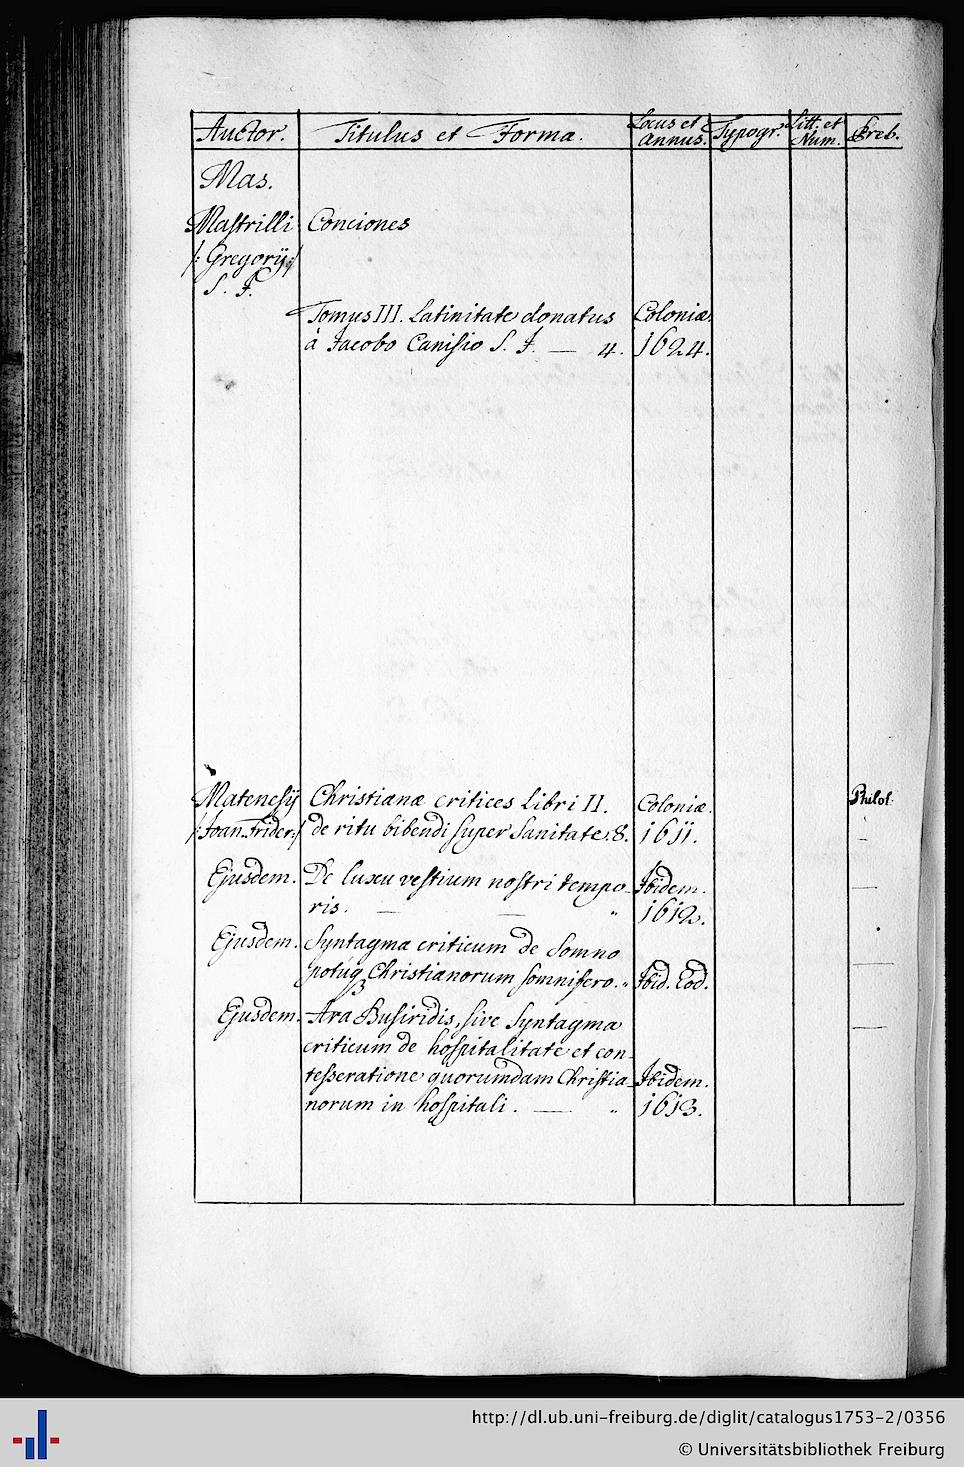 Auctor. Titulus et Forma. Locus et Annus. Typogr. Litt. et Num. Preb.
Mas.
Mastrilli Conciones
/: Gregorij :/
S. J.
Tomus III. Latinitate donatus Coloniæ.
à Jacobo Canisio S. J. — 4. 1624.
Matenesij Christianæ critices Libri II. Coloniæ. Philol.
/: Joan. Frider: / de ritu bibendi super Sanitate. 8. 1611. –
Ejusdem. De luxu vestium nostri tempo- Ibidem. —
ris. — — " 1612.
Ejusdem. Syntagma criticum de Somno
potuq3 Christianorum somnifero. " Ibid. Eod. —
Ejusdem. Ara Busiridis, sive Syntagma —
criticum de hospitalitate et con-
tesseratione quorumdam Christia- Ibidem.
norum in hospitali. — " 1613.
http://dl.ub.uni-freiburg.de/diglit/catalogus1753-2/0356
© Universitätsbibliothek Freiburg